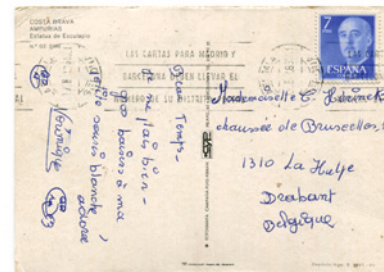 COSTA BRAVA
AMPURIAS
Estatua de Esculapio
LAS CARTAS PARA MADRID Y
BARCELONA DEBEN LLEVAR EL
NUMERO DE SU DISTRITO
7
ESPAÑA
Beau Temps -
Je me plais bien -
gros baisers à ma
petite souris blanche
adorée
Véronique
Mademoiselle C.
chaussée de Bruxelles,
1310 La Hulpe
Brabant
Belgique